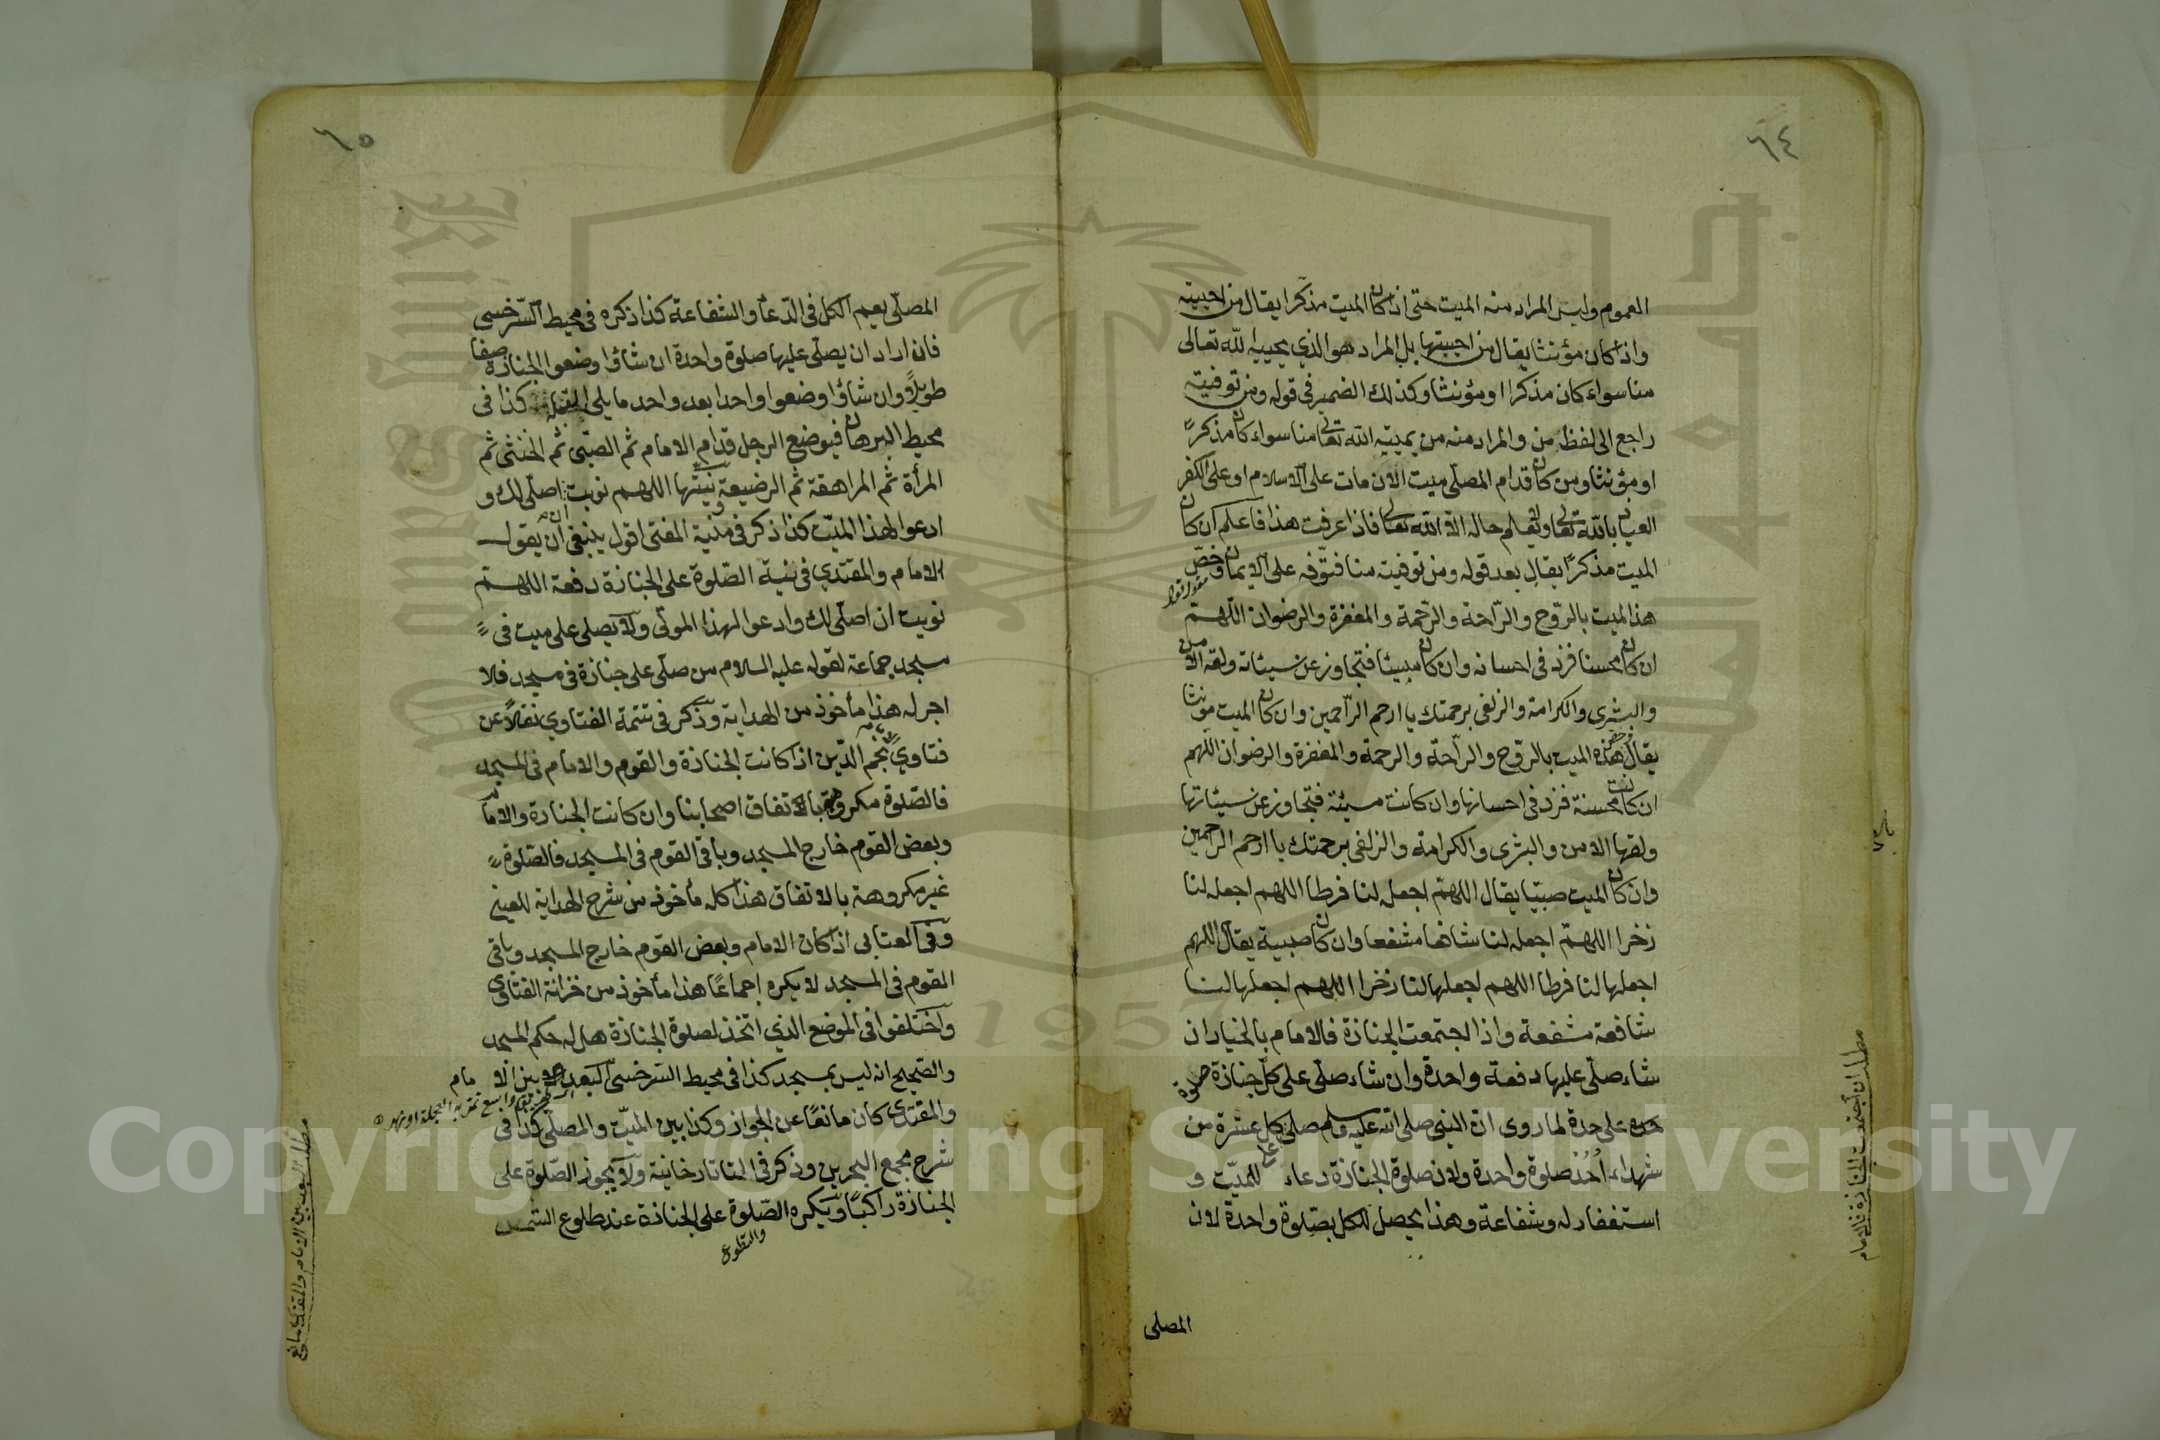 ٦٤
العموم وليس المراد منه الميت حتى اذا كان الميت مذكرا يقال من احييته
واذا كان مؤنثا يقال من احييتها بل المراد هو الذي يحييه الله تعالى
منا سواء كان مذكرا او مؤنثا وكذلك الضمير في قوله ومن توفيته
راجع الى لفظ من والمراد منه من يميته الله تعالى منا سواء كان مذكرًا
او مؤنثا ومن كان قدام المصلى ميت الآن مات على الاسلام او على الكفر
العياذ بالله تعالى ولا يعلم حاله الا الله تعالى فاذا عرفت هذا فاعلم ان كان
الميت مذكرًا يقال بعد قوله ومن توفيته منا فتوفه على الايمان وخصّ
هذا الميت بالرّوح والرّاحة والرّحمة والمغفرة والرضوان اللّهمّ
ان كان محسنا فزد في احسانه وان كان مسيئا فتجاوز عن سيئاته ولقه الأمن
والبشرى والكرامة والزلفى برحمتك يا ارحم الرّاحمين وان كان الميت مؤنثا
يقال وخصّ هذه الميت بالرّوح والرّاحة والرحمة والمغفرة والرضوان اللهم
ان كانت محسنة فزد في احسانها وان كانت مسيئة فتجاوز عن سيئاتها
ولقها الامن والبشرى والكرامة والزلفى برحمتك يا ارحم الرحمين
وان كان الميت صبيّا يقال اللهمّ اجعله لنا فرطا اللهم اجعله لنا
ذخرا اللهمّ اجعله لنا شافعا مشفعا وان كان صبية يقال اللهم
اجعلها لنا فرطا اللهم اجعلها لنا ذخرا اللهم اجعلها لنا
شافعة مشفعة واذا اجتمعت الجنازة فالامام بالخيار ان
شاء صلّى عليها دفعة واحدة وان شاء صلّى على كلّ جنازة صلوة
على حدة لما روى انّ النبى صلى الله عليه وسلم صلى على كل عشرة من
شهداء اُحُد صلوة واحدة ولان صلوة الجنازة دعاء للميّت و
استغفار له وشفاعة وهذا يحصل للكل بصلوة واحدة لان
المصلى
مطلب ان اجتمعت الجنازة فالامام
٦٥
المصلّى يعم الكل فى الدّعاء والشفاعة كذا ذكره فى محيط السّرخسى
فان اراد ان يصلّى عليها صلوة واحدة ان شاؤا وضعوا الجنازة صفا
طويلاً وان شاؤا وضعوا واحدا بعد واحد مما يلى القبلة كذا فى
محيط البرهان فيوضع الرجل قدام الامام ثم الصبّى ثم الخنثى ثم
المرأة ثم المراهقة ثم الرضيعة ونيتها اللهم نويت ان اصلّى لك و
ادعو لهذا الميّت كذا ذكر فى منية المفتى اقول ينبغى ان يقول
الامام والمقتدي فى نية الصّلوة على الجنازة دفعة اللهمّ
نويت ان اصلّى لك وادعو لهذا الموتى ولا يصلى على ميت فى
مسجد جماعة لقوله عليه السلام من صلّى على جنازة فى مسجد فلا
اجر له هذا مأخوذ من الهداية وذكر فى تتمة الفتاوي نقلاً عن
فتاوي نجم الدّين اذا كانت الجنازة والقوم والامام فى المسجد
فالصّلوة مكروهة بالاتفاق اصحابنا وان كانت الجنازة والامام
وبعض القوم خارج المسجد وباقى القوم فى المسجد فالصّلوة
غير مكروهة بالاتفاق هذا كله مأخوذ من شرح الهداية للعينى
وفى العتابى اذا كان الامام وبعض القوم خارج المسجد وباقى
القوم فى المسجد لا يكره اجماعًا هذا مأخوذ من خزانة الفتاوى
واختلفوا فى الموضع الذي اتخذ لصلوة الجنازة هل له حكم المسجد
والصّحيح انه ليس بمسجد كذا فى محيط السّرخسىّ البعد بين الامام
والمقتدى كان مانعًا عن الجواز وكذا بين الميّت والمصلّى كذا فى
شرح مجمع البحرين وذكر فى التاتارخانية ولا يجوز الصّلوة على
الجنازة راكبًا ويكره الصّلوة على الجنازة عند طلوع الشمس
مطلب البعد بين الامام والمقتدى مانع
Copyright © King Saud University
1957